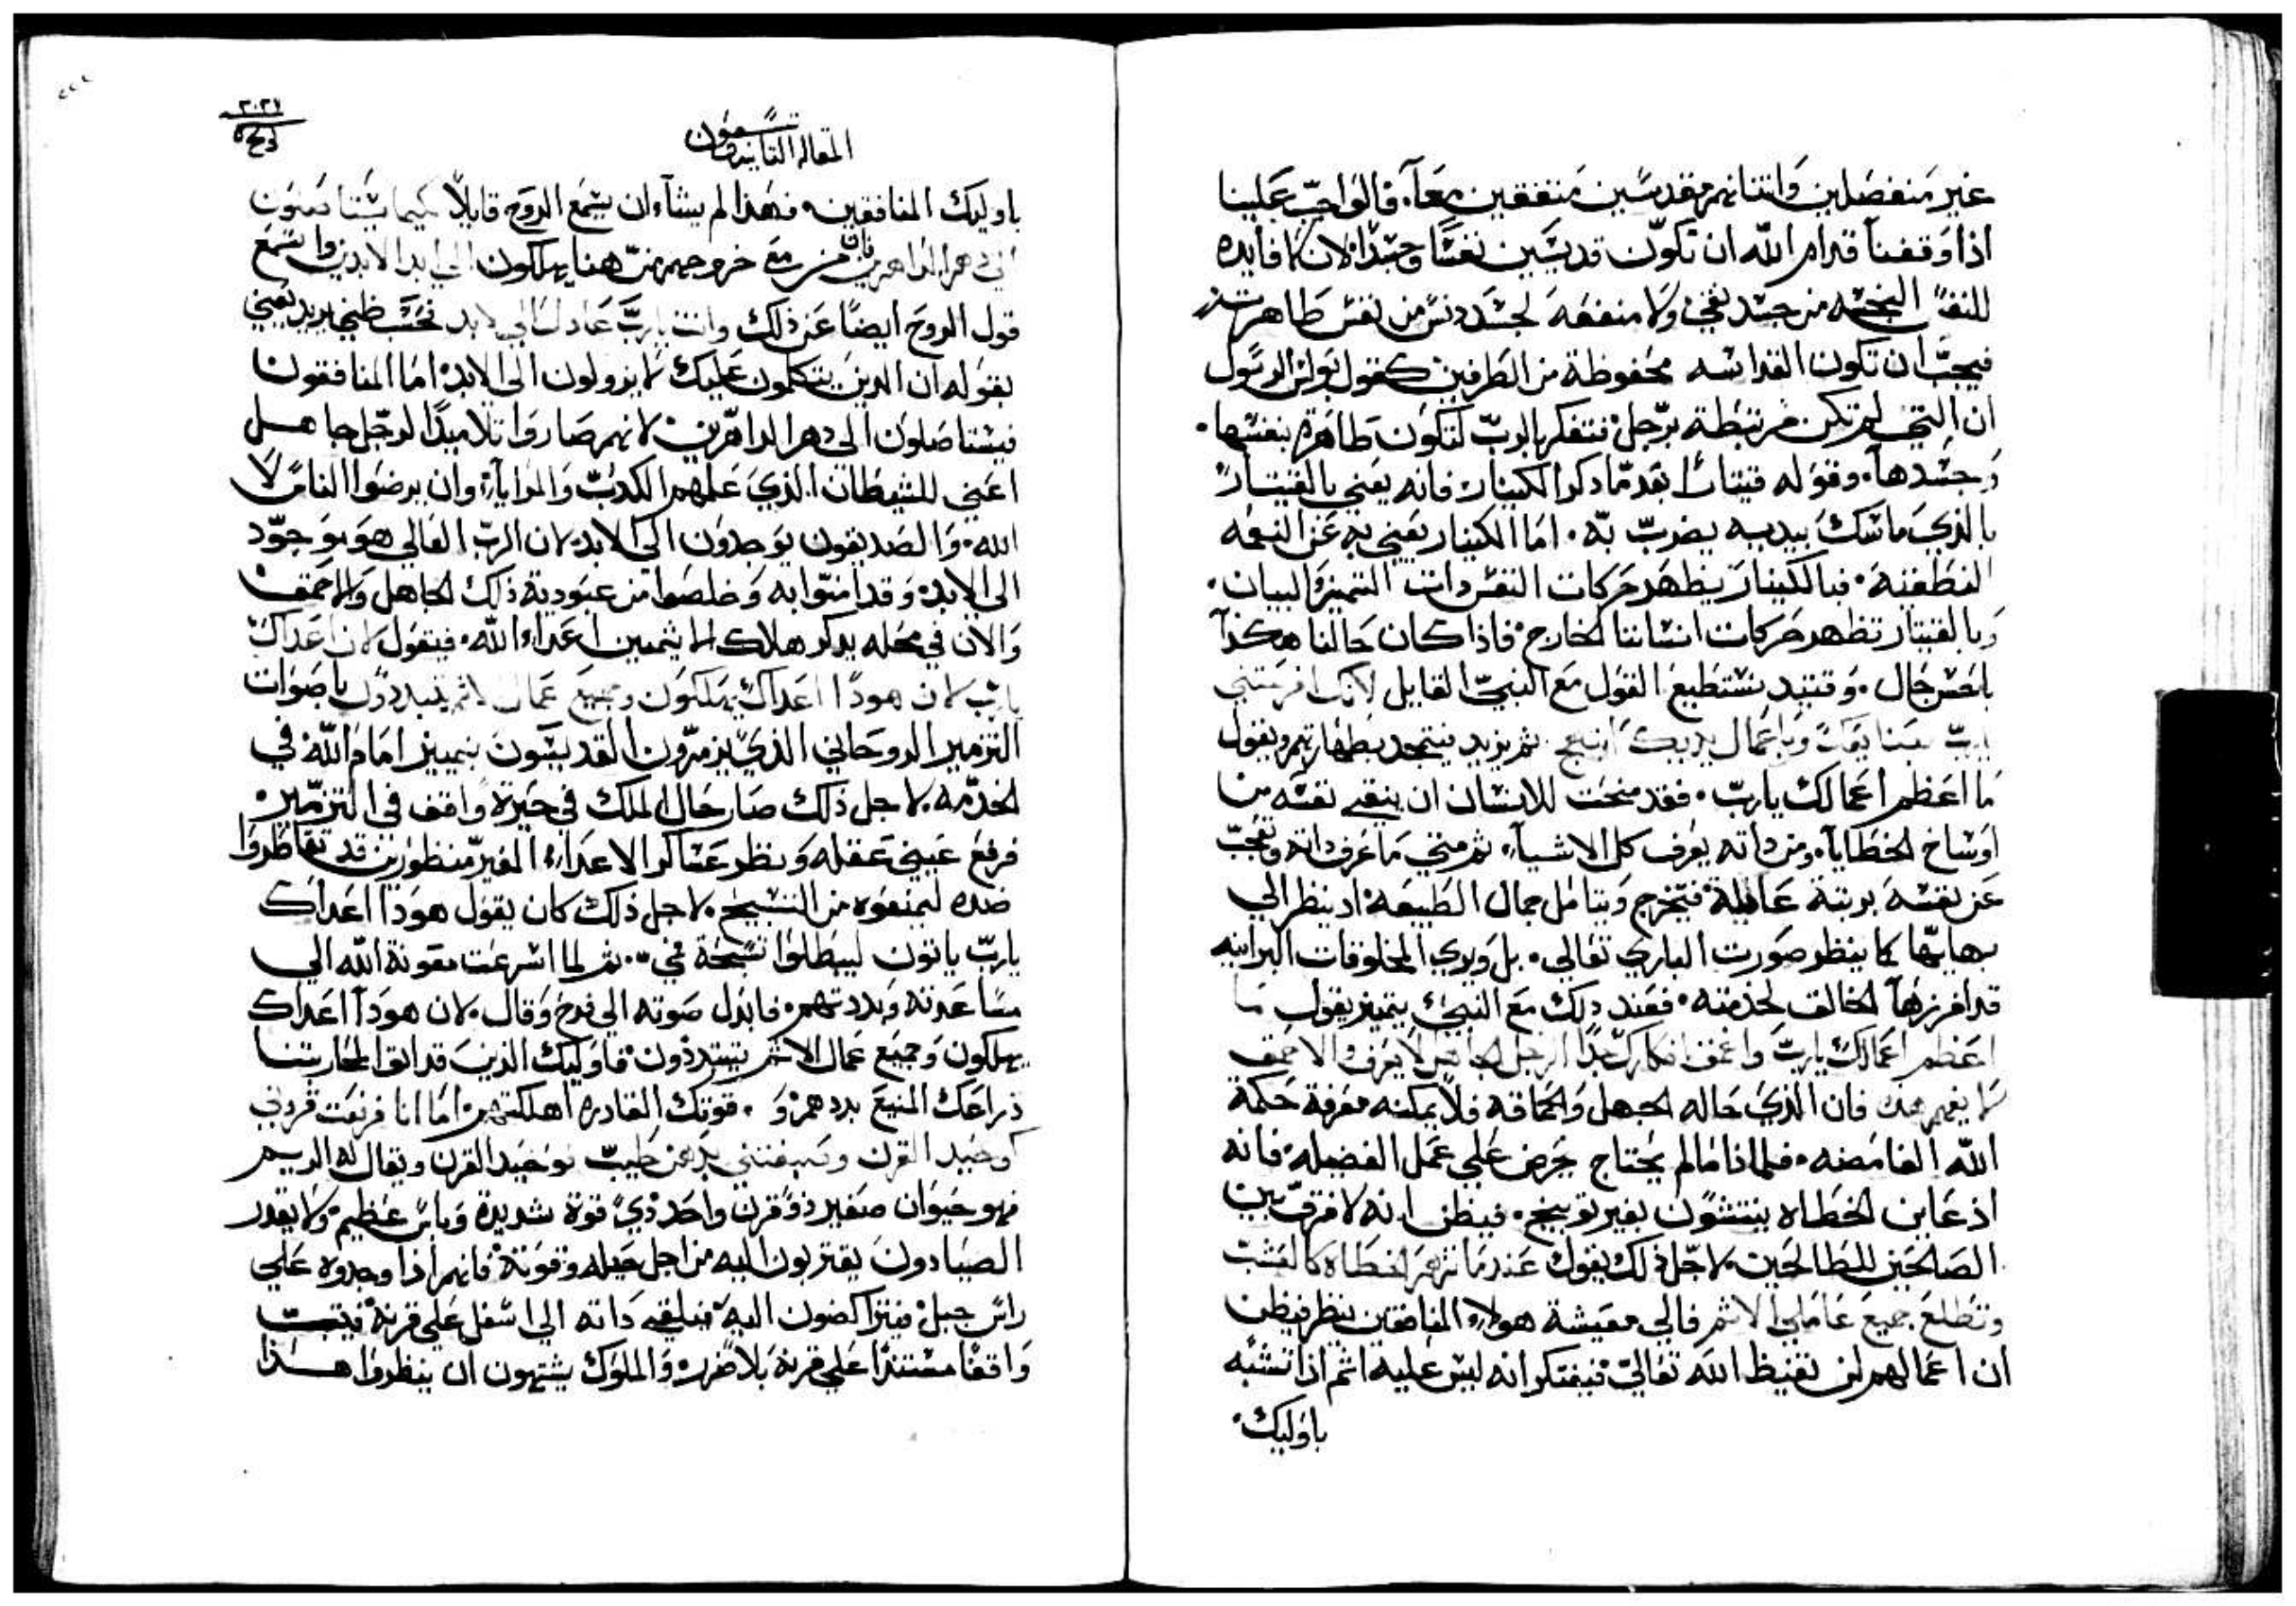 غير منفصلين وانسانهم مقدسين متفقين معاً. فالواجب علينا
اذا وقفنا قدام الله ان نكون قديسين نفساً وجسداً. لان لا فايده
للنفس النجسه من جسد نقي ولا منفعه لجسد دنس من نفس طاهره
فيجب ان تكون القداسه محفوظة من الطرفين كقول بولس الرسول
ان التي لم تكن مرتبطة برجل تتفكر بالرب لتكون طاهرة بنفسها.
وجسدها. وقوله قيتار بعد ما ذكر الكينار فانه يعني بالقيتار
بالذي ماسك بيديه يضرب به. اما الكينار يعني به عن النعمه
النطقية. فبالكينار يظهر حركات النفس دات التميز والبيان.
وبالقيتار تظهر حركات انساننا الخارج. فاذا كان حالنا هكذا
باحسن حال. وقتيد نستطيع القول مع النبي القايل لانك افرحتني
يارب بصنايعك وباعمال يديك ابتهج ثم يزيد يتمجد بطهارتهم ويقول
ما اعظم اعمالك يارب. فقد منحت للانسان ان ينقي نفسه من
اوساخ الخطايا. ومن داته يعرف كل الاشيا. ثم متي ما عرف داته وتعجب
عن نفسه برتبة عاقلة فيخرج ويتامل جمال الطبيعة اد ينظر الي
بهايها كما ينظر صورت الباري تعالي. بل ويري المخلوقات البرانيه
قد افرزها الخالق لخدمته. فعند دلك مع النبي يتميز يقول ما
اعظم اعمالك يارب واعمق افكارك جدا الرجل الجاهل لا يعرف والاحمق
لا يفهم هذه فان الذي حاله الجهل والحماقه فلا يمكنه معرفة حكمة
الله الغامضه. فلماذا مالم يحتاج يحرص علي عمل الفضيله. فانه
اذ عاين الخطاه ينتشون بغير توبيخ. فيظن انه لا فرق بين
الصالحين للطالحين. لاجل ذلك يقول عندما تزهر الخطاة كالعشب
وتطلع جميع عاملي الاثم فالي معيشة هولاء المنافقين ينظر فيظن
ان اعمالهم لن تغيظ الله تعالي فيفتكر انه ليس عليه اثم اذا تشبه
باوليك.
٢٠٢١
المقاله الثانيه وتسعون
باوليك المنافقين. فهذا لم يشاء ان يسمع الروح قايلاً كيما يستاصلون
الي دهر الداهرين فان من مع خروجهم من هنا يهلكون الي ابد الابدين واسمع
قول الروح ايضاً عن ذلك وانت يارب عادل الي الابد فحسب ظني يريد يعني
بقوله ان الدين يتكلمون عليك لا يزولون الي الابد. اما المنافقون
فيستاصلون الي دهر الداهرين. لانهم صاروا تلاميداً لرجل جاهل
اعني للشيطان الذي علمهم الكدب والمراياة. وان يرضوا الناس لا
الله. والصديقون يوجدون الي الابد. لان الرب العالي هو موجود
الي الابد. وقد امنوا به وخلصوا من عبودية ذلك الجاهل والاحمق
والان في محله يدكر هلاك الاثيمين اعداء الله. فيقول لان اعداك
يارب لان هودا اعداك يهلكون وجميع عمال الاثم يتبددون باصوات
التزمير الروحاني الذي يزمرون القديسون بتمييز امام الله في
الخدمه. لاجل ذلك صار حال الملك في حيرة واقف في التزمير.
فرفع عيني عقله ونظر عساكر الاعداء الغير منظورين قد تقاطروا
ضده ليمنعوه من التسبيح. لاجل ذلك كان يقول هودا اعداك
يارب ياتون ليبطلوا تسبحة فمي. ثم لما اسرعت معونة الله الي
مساعدته وبددتهم. فابدل صوته الي فرح وقال. لان هودا اعداك
يهلكون وجميع عمال الاثم يتبددون. فاوليك الذين قد اتوا لمحاربتنا
ذراعك المنيع بددهم و. قوتك القادره اهلكتهم. اما انا فرفعت قروني
كوحيد القرن وصبغتني بدهن طيب توحيد القرن ويقال له الريم
فهو حيوان صغير ذو قرن واحد ذي قوة شديدة وباس عظيم. ولا يقدر
الصيادون يقتربون اليه من اجل حيله وقوته. فانهم اذا وجدوه علي
راس جبل. فيتراكضون اليه فيلقي داته الي اسفل علي قرنه فيتبت
واقفا مستندا علي قرنه بلا ضرر. والملوك يشتهون ان ينظروا هذا